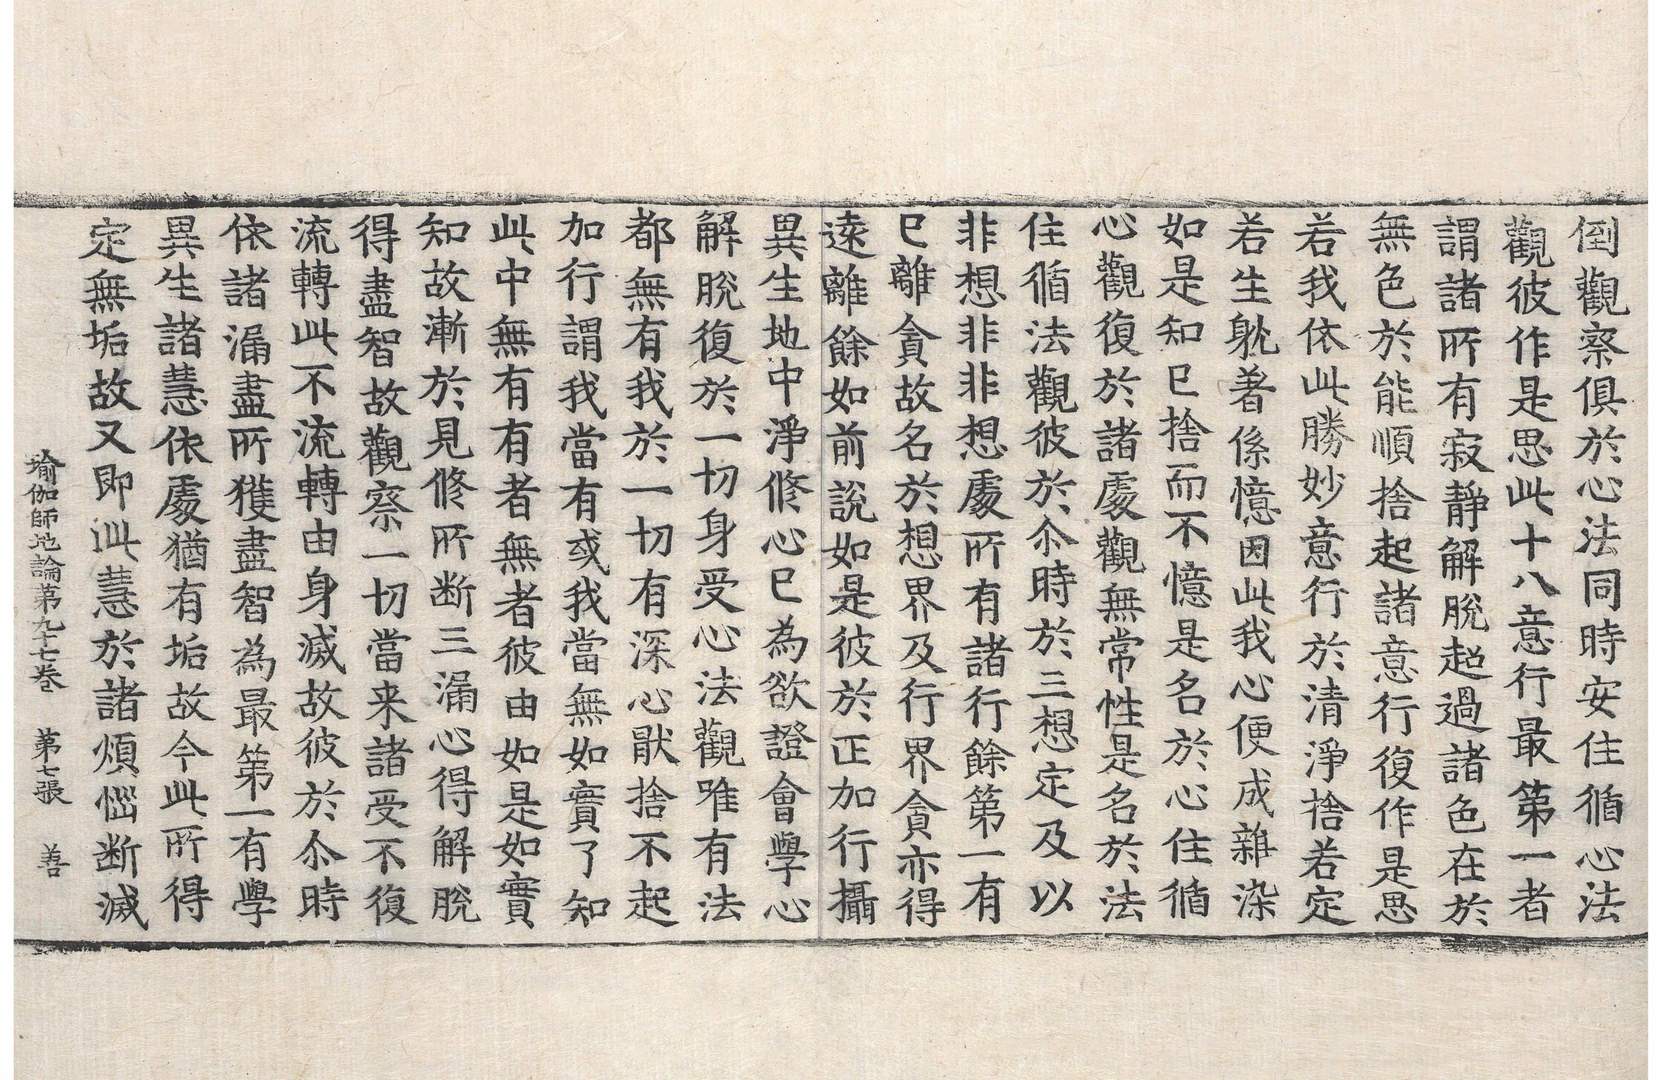 倒觀察俱於心法同時安住循心法
觀彼作是思此十八意行最第一者
謂諸所有寂靜解脫超過諸色在於
無色於能順捨起諸意行復作是思
若我依此勝妙意行於清淨捨若定
若生躭著係憶因此我心便成雜染
如是知已捨而不憶是名於心住循
心觀復於諸處觀無常性是名於法
住循法觀彼於尒時於三想定及以
非想非非想處所有諸行餘第一有
已離貪故名於想界及行界貪亦得
遠離餘如前說如是彼於正加行攝
異生地中淨修心已為欲證會學心
解脫復於一切身受心法觀唯有法
都無有我於一切有深心猒捨不起
加行謂我當有或我當無如實了知
此中無有有者無者彼由如是如實
知故漸於見修所断三漏心得解脫
得盡智故觀察一切當来諸受不復
流轉此不流轉由身滅故彼於尒時
依諸漏盡所獲盡智為最第一有學
異生諸慧依處猶有垢故今此所得
定無垢故又即此慧於諸煩惱断滅
瑜伽師地論第九十七卷 第七張 善